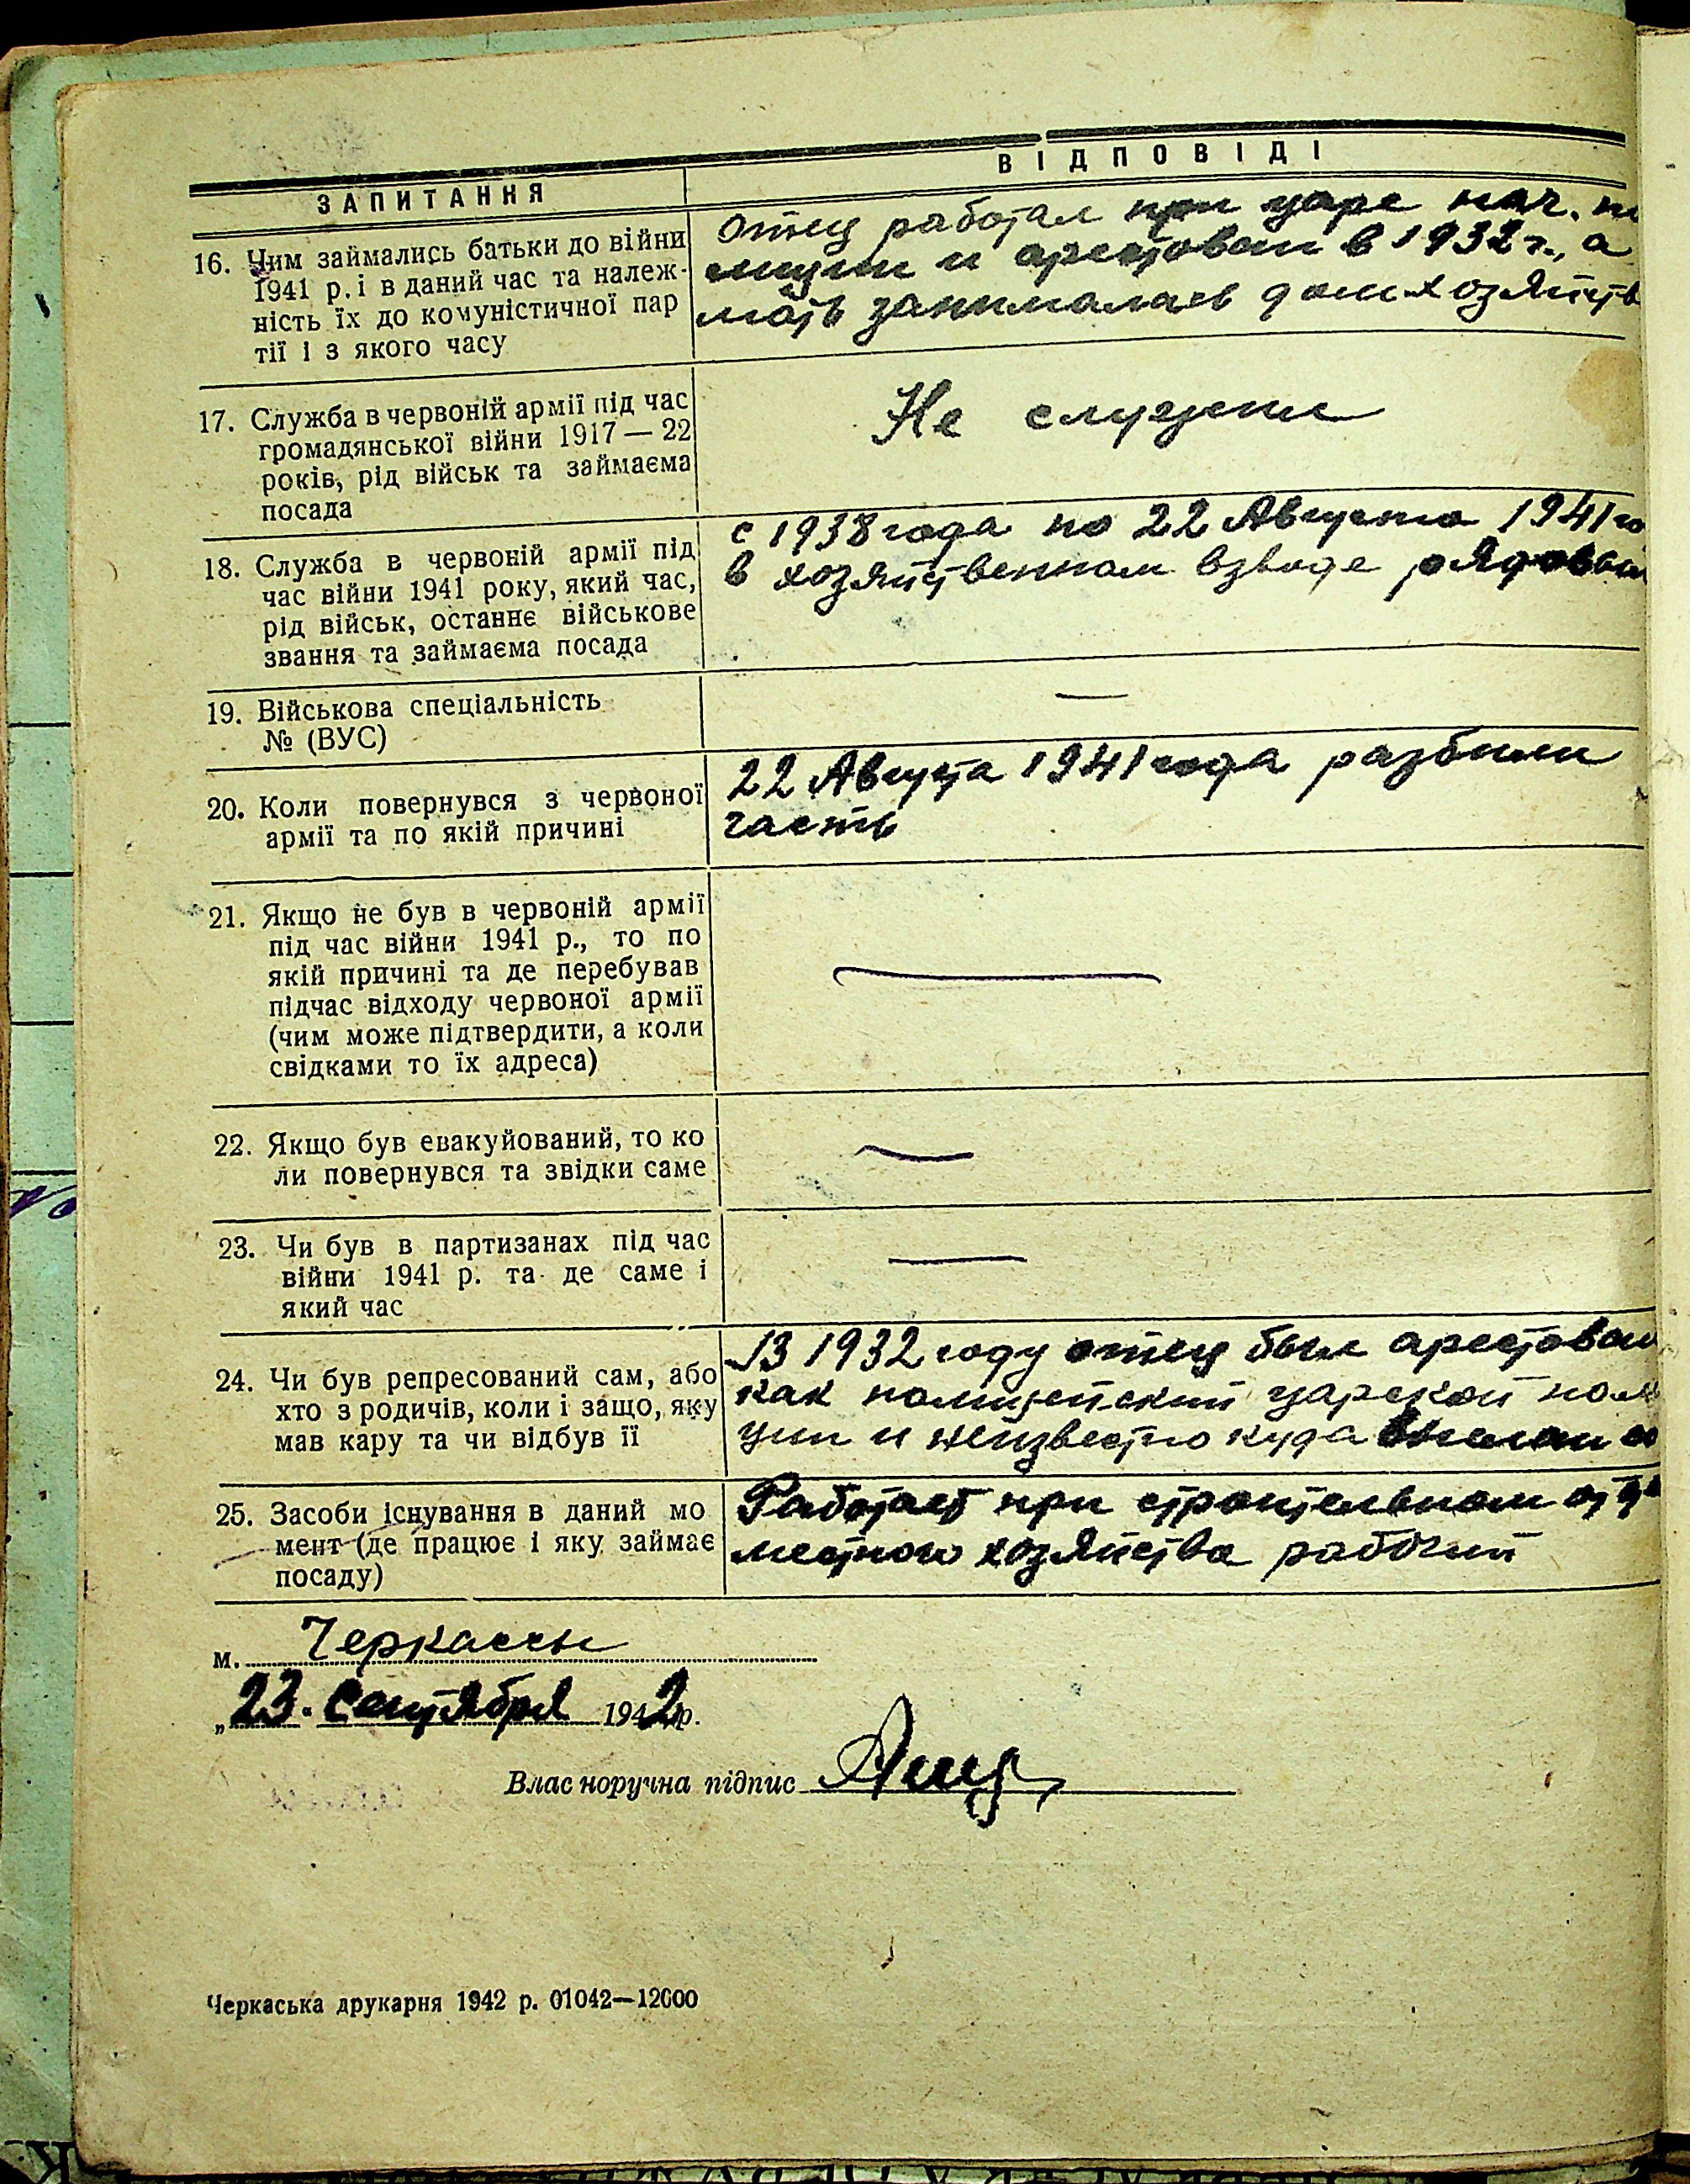 ЗАПИТАННЯ
ВІДПОВІДІ
16. Чим займались батьки до війни
1941 р. і в даний час та належ-
ність їх до комуністичної пар
тії і з якого часу
Отец работал при царе нач. по
лиции и арестован в 1932 г., а
мать занималась дом.хозяйств
17. Служба в червоній армії під час
громадянської війни 1917 — 22
років, рід військ та займаєма
посада
Не служил
18. Служба в червоній армії під
час війни 1941 року, який час,
рід військ, останнє військове
звання та займаєма посада
с 1938 года по 22 Августа 1941 го
в хозяйственном взводе рядовой
19. Військова спеціальність
№ (ВУС)
—
20. Коли повернувся з червоної
армії та по якій причині
22 Августа 1941 года разбили
часть
21. Якщо не був в червоній армії
під час війни 1941 р., то по
якій причині та де перебував
підчас відходу червоної армії
(чим може підтвердити, а коли
свідками то їх адреса)
—
22. Якщо був евакуйований, то ко
ли повернувся та звідки саме
—
23. Чи був в партизанах під час
війни 1941 р. та де саме і
який час
—
24. Чи був репресований сам, або
хто з родичів, коли і защо, яку
мав кару та чи відбув її
В 1932 году отец был арестован
как полицейский царской поли
ции и неизвестно куда
25. Засоби існування в даний мо
мент (де працює і яку займає
посаду)
Работает при строительном отде
местного хозяйства рабочий
м. Черкассы
„23. Сентября 1942 р.
Власноручна підпис
Черкаська друкарня 1942 р. 01042—12000